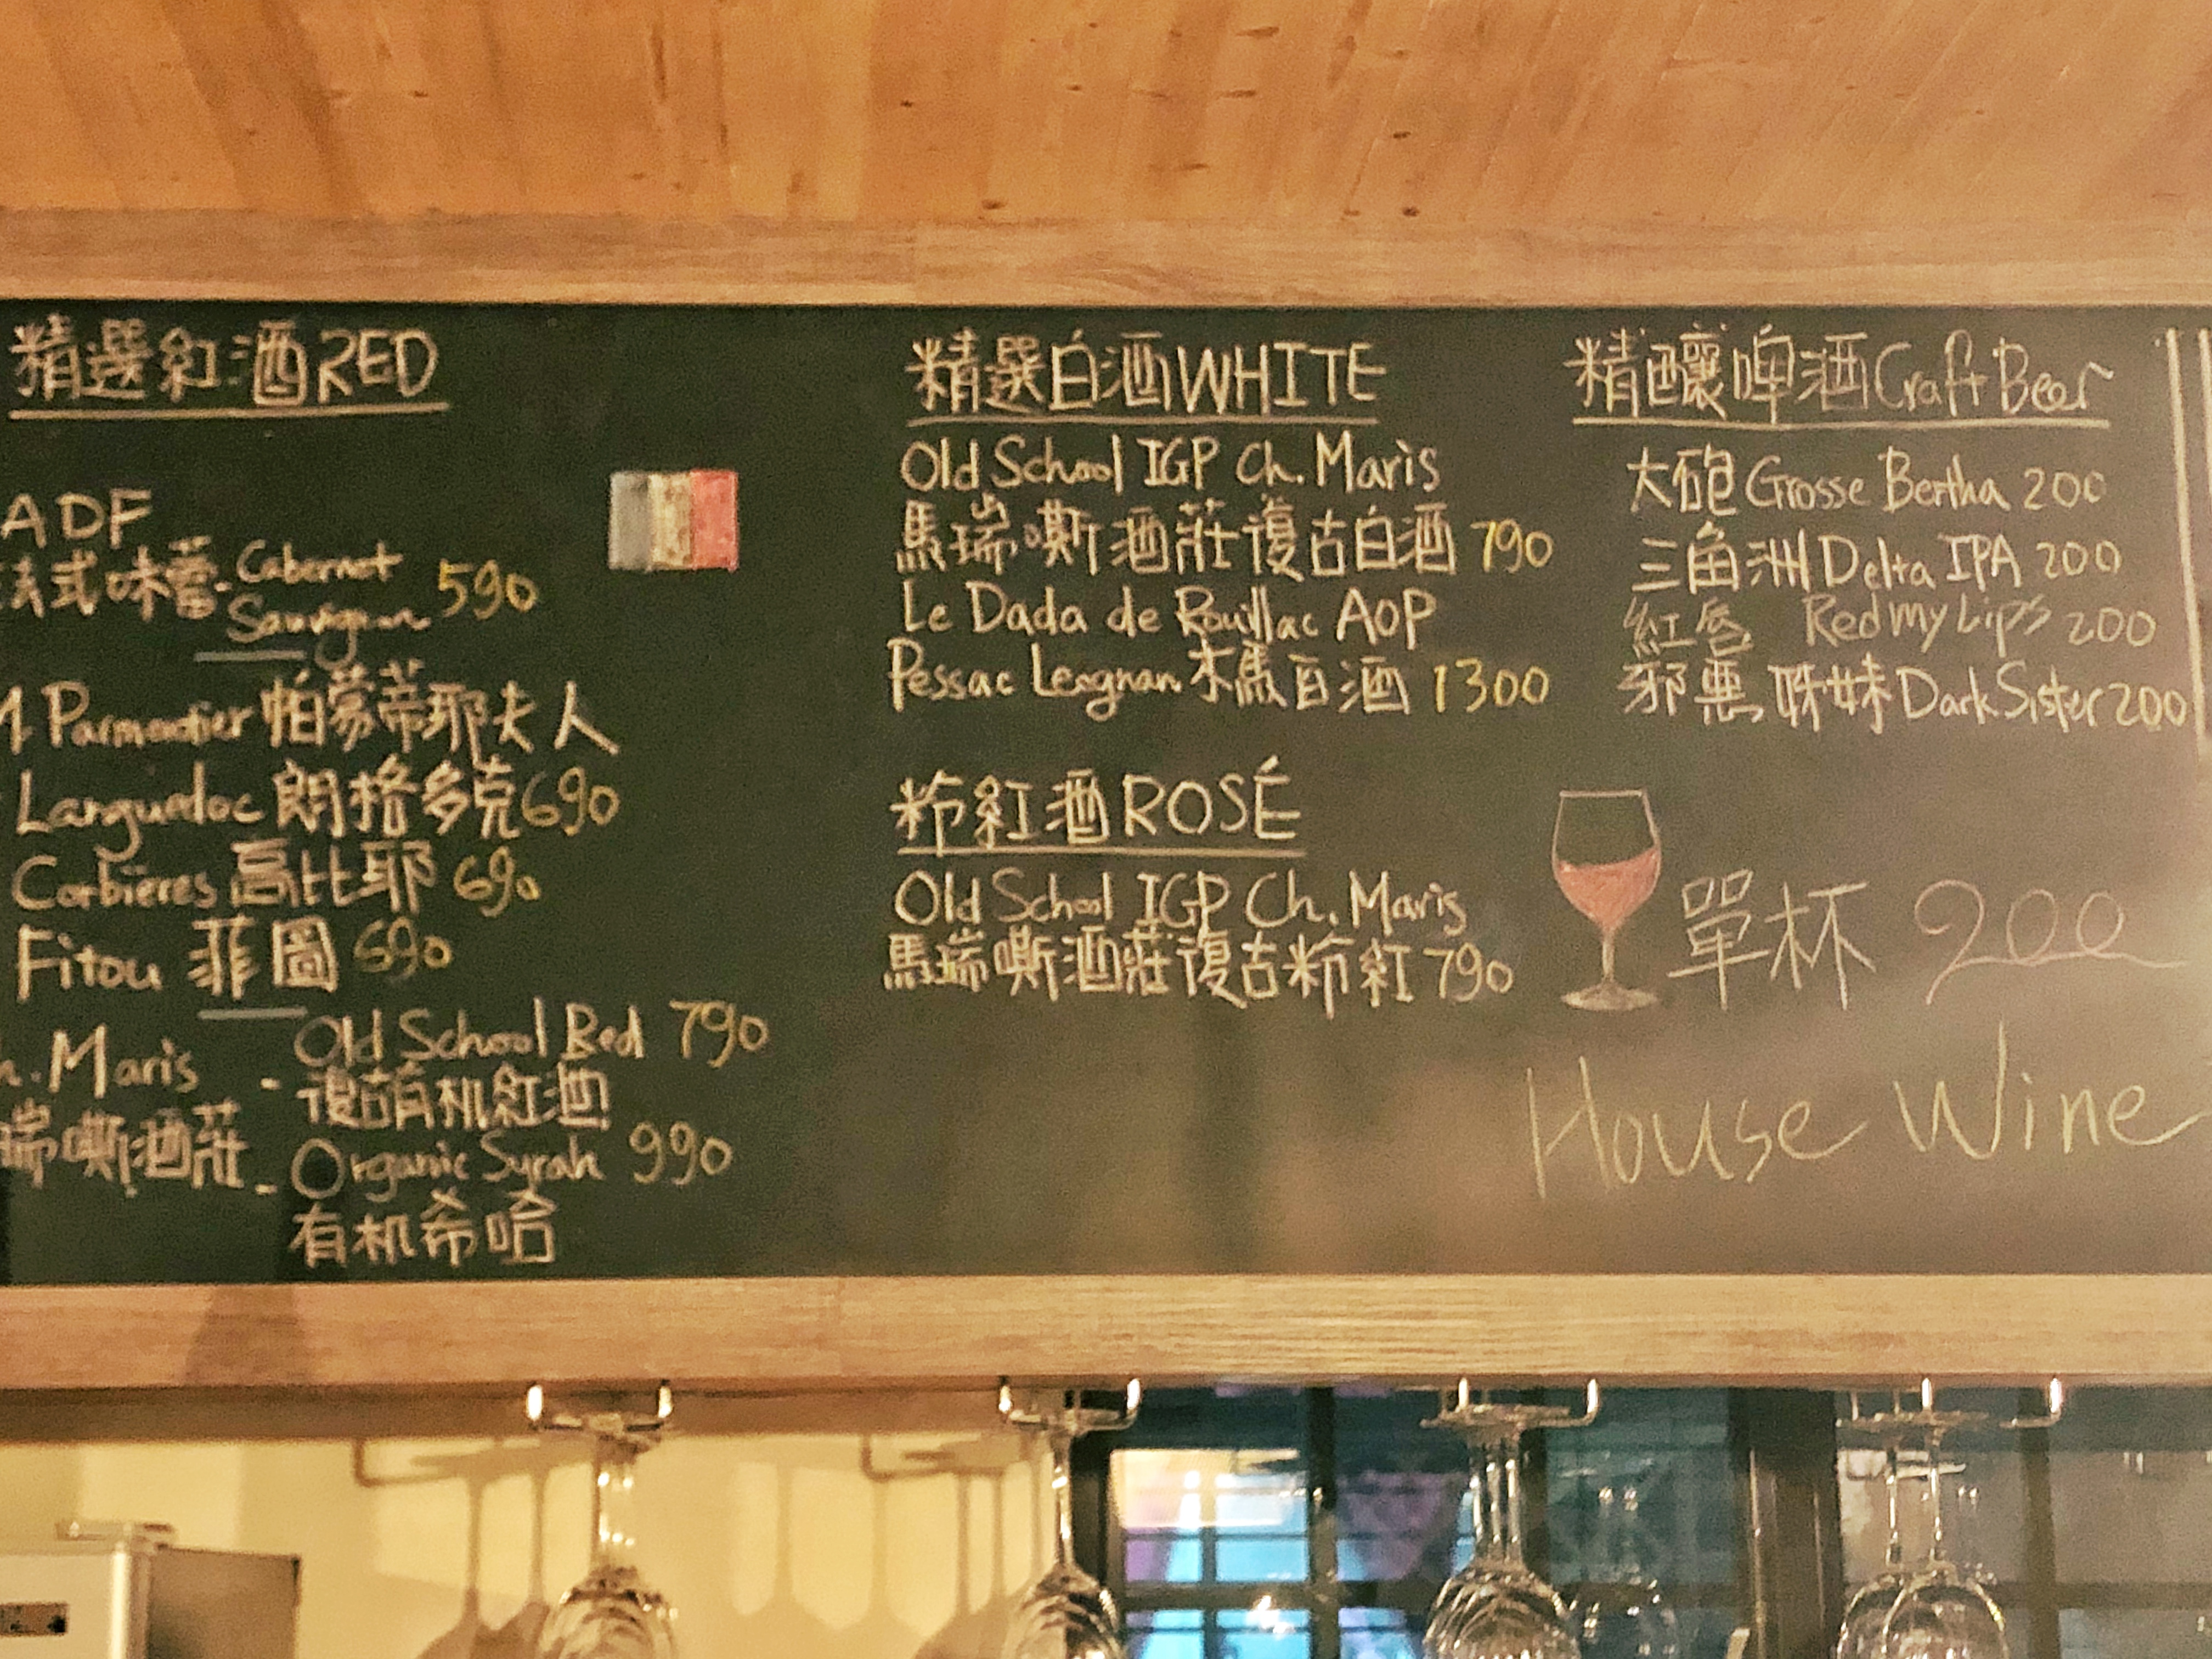 精選紅酒RED
ADF
法式味蕾 - Cabernet Sauvignon 590
M Parmentier 帕蒙蒂耶夫人
Languedoc 朗格多克 690
Corbières 高比耶 690
Fitou 菲圖 690
Ch. Maris
瑞嘶酒莊
- Old School Red 790
復古有机紅酒
- Organic Syrah 990
有机希哈
精選白酒WHITE
Old School IGP Ch. Maris
馬瑞嘶酒莊復古白酒 790
Le Dada de Rouillac AOP
Pessac Leognan 木馬白酒 1300
粉紅酒ROSÉ
Old School IGP Ch. Maris
馬瑞嘶酒莊復古粉紅 790
精釀啤酒Craft Beer
大砲 Grosse Bertha 200
三角洲 Delta IPA 200
紅唇 Red my Lips 200
邪惡姊妹 Dark Sister 200
單杯 200
House Wine